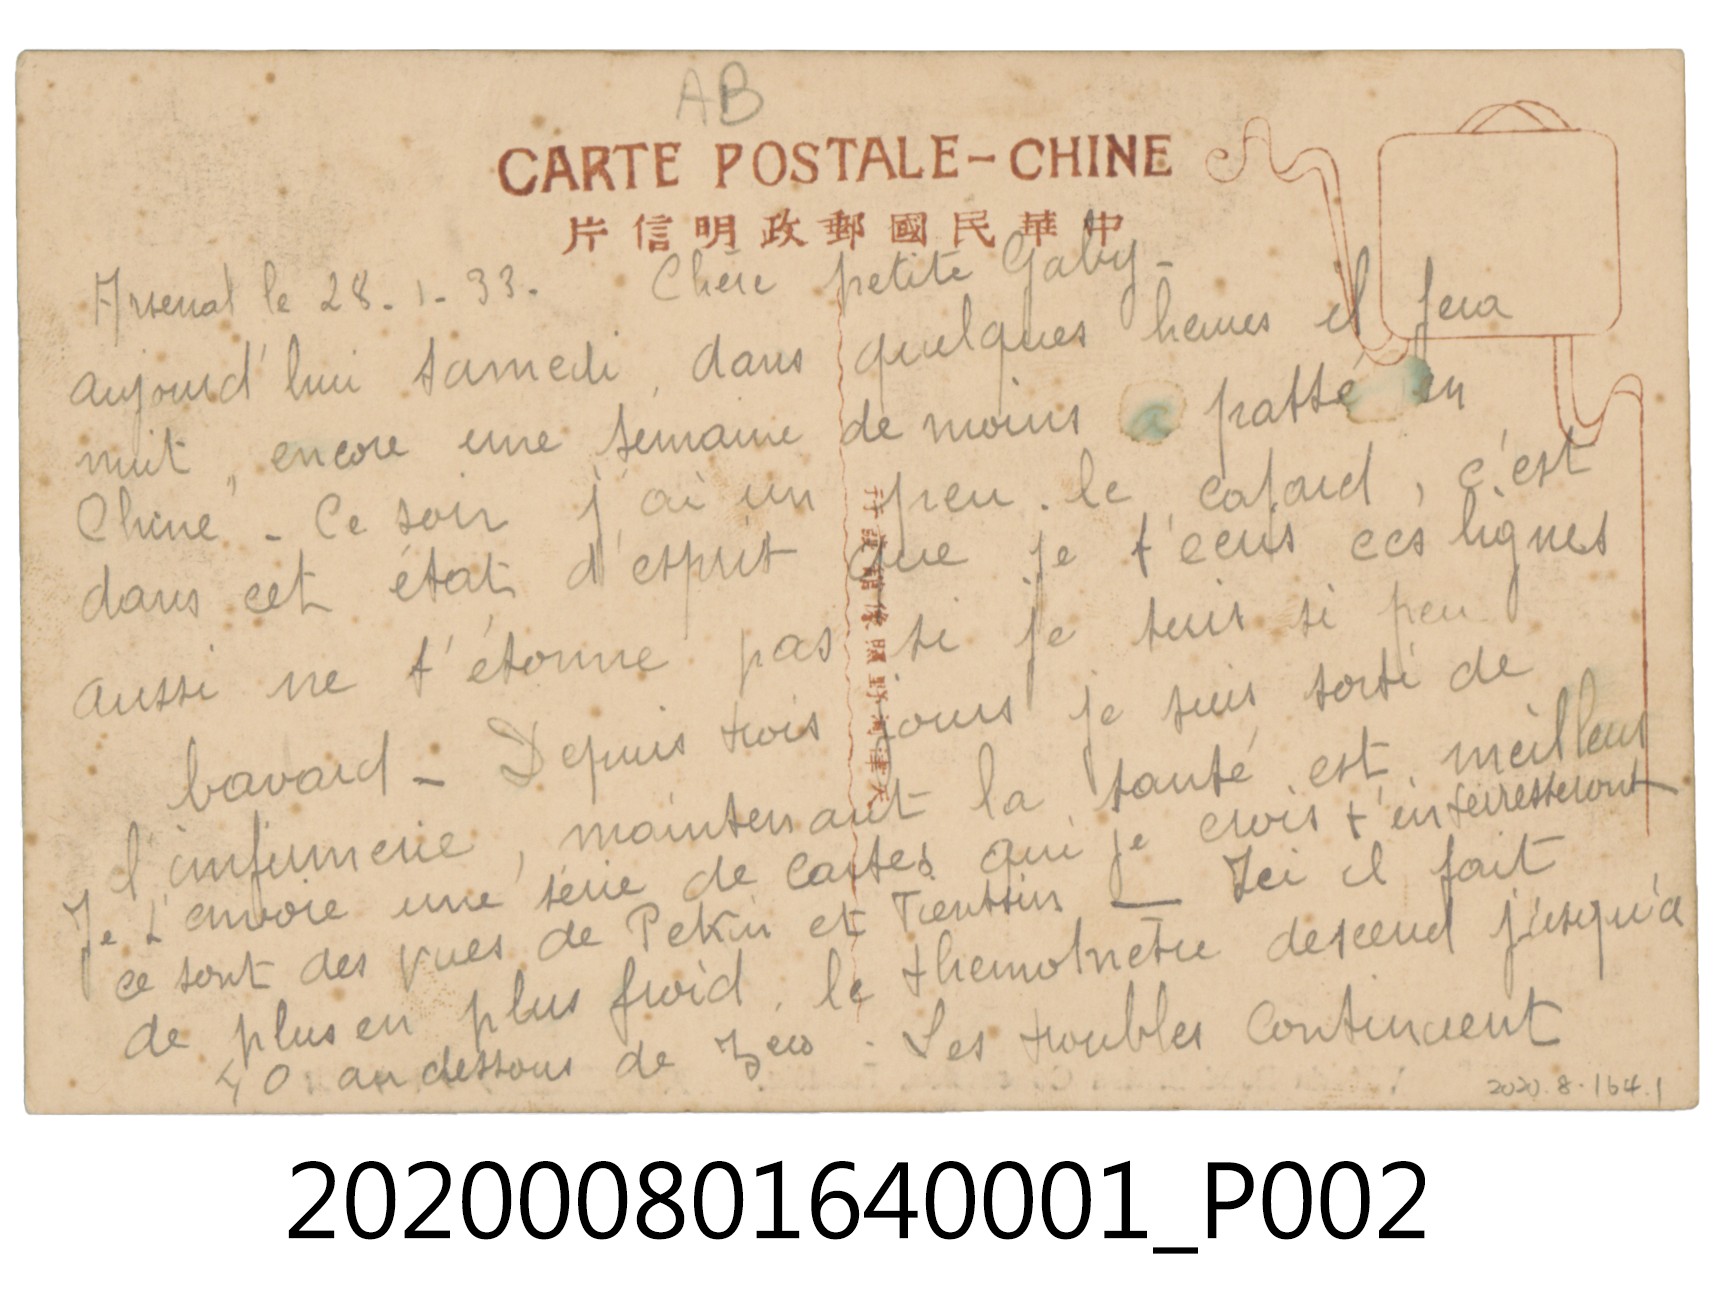 AB
CARTE POSTALE-CHINE
片信明政郵國民華中
Arsenal le 28-1-33. Chère petite Gaby-
aujourd'hui samedi, dans quelques heures il fera
nuit, encore une semaine de moins a passé en
Chine - Ce soir j'ai un peu le cafard, c'est
dans cet état d'esprit que je t'ecris ces lignes
aussi ne t'étonne pas si je suis si peu
bavard - Depuis trois jours je suis sorti de
l'infirmerie, maintenant la santé est meilleur
Je t'envoie une série de cartes qui je crois t'interresseront
ce sont des vues de Pekin et Tientsin — Ici il fait
de plus en plus froid, le themomètre descend jusqu'à
40 au dessous de zero - Les troubles continuent
天津
野照像館
行
2020.8.164.1
202000801640001_P002